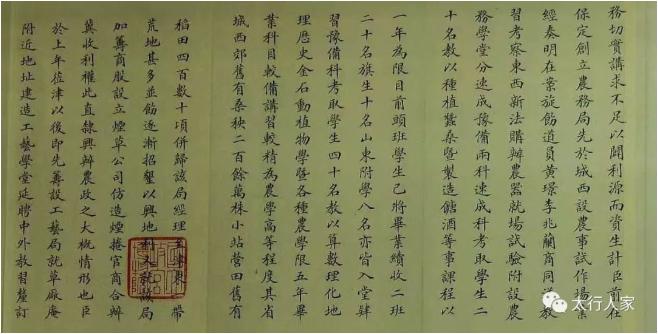 務切實講求不足以闢利源而資生計臣前在
保定創立農務局先於城西設農事試作場業
經奏明在案旋飭道員黃璟李兆蘭商同洋教
習考察東西新法購辦農器就場試驗附設農
務學堂分速成豫備兩科速成科考取學生二
十名教以種植蠶桑暨製造餹酒等事課程以
一年為限目前頭班學生已將畢業續收二班
二十名旗生十名山東附學八名亦皆入堂肄
習豫備科考取學生四十名教以算數理化地
理歷史金石動植物學暨各種農學限五年畢
業科目較備講習較精為農學高等程度其省
城西郊舊有桑秧二百餘萬株小站營田舊有
稻田四百數十頃併歸該局經理至津東一帶
荒地甚多並飭逐漸招墾以興地利又就該局
加籌商股設立煙草公司仿造煙捲官商合辦
冀收利權此直隸興辦農政之大概情形也臣
於上年莅津以後即先籌設工藝局就草廠庵
附近地址建造工藝學堂延聘中外教習釐訂
太行人家